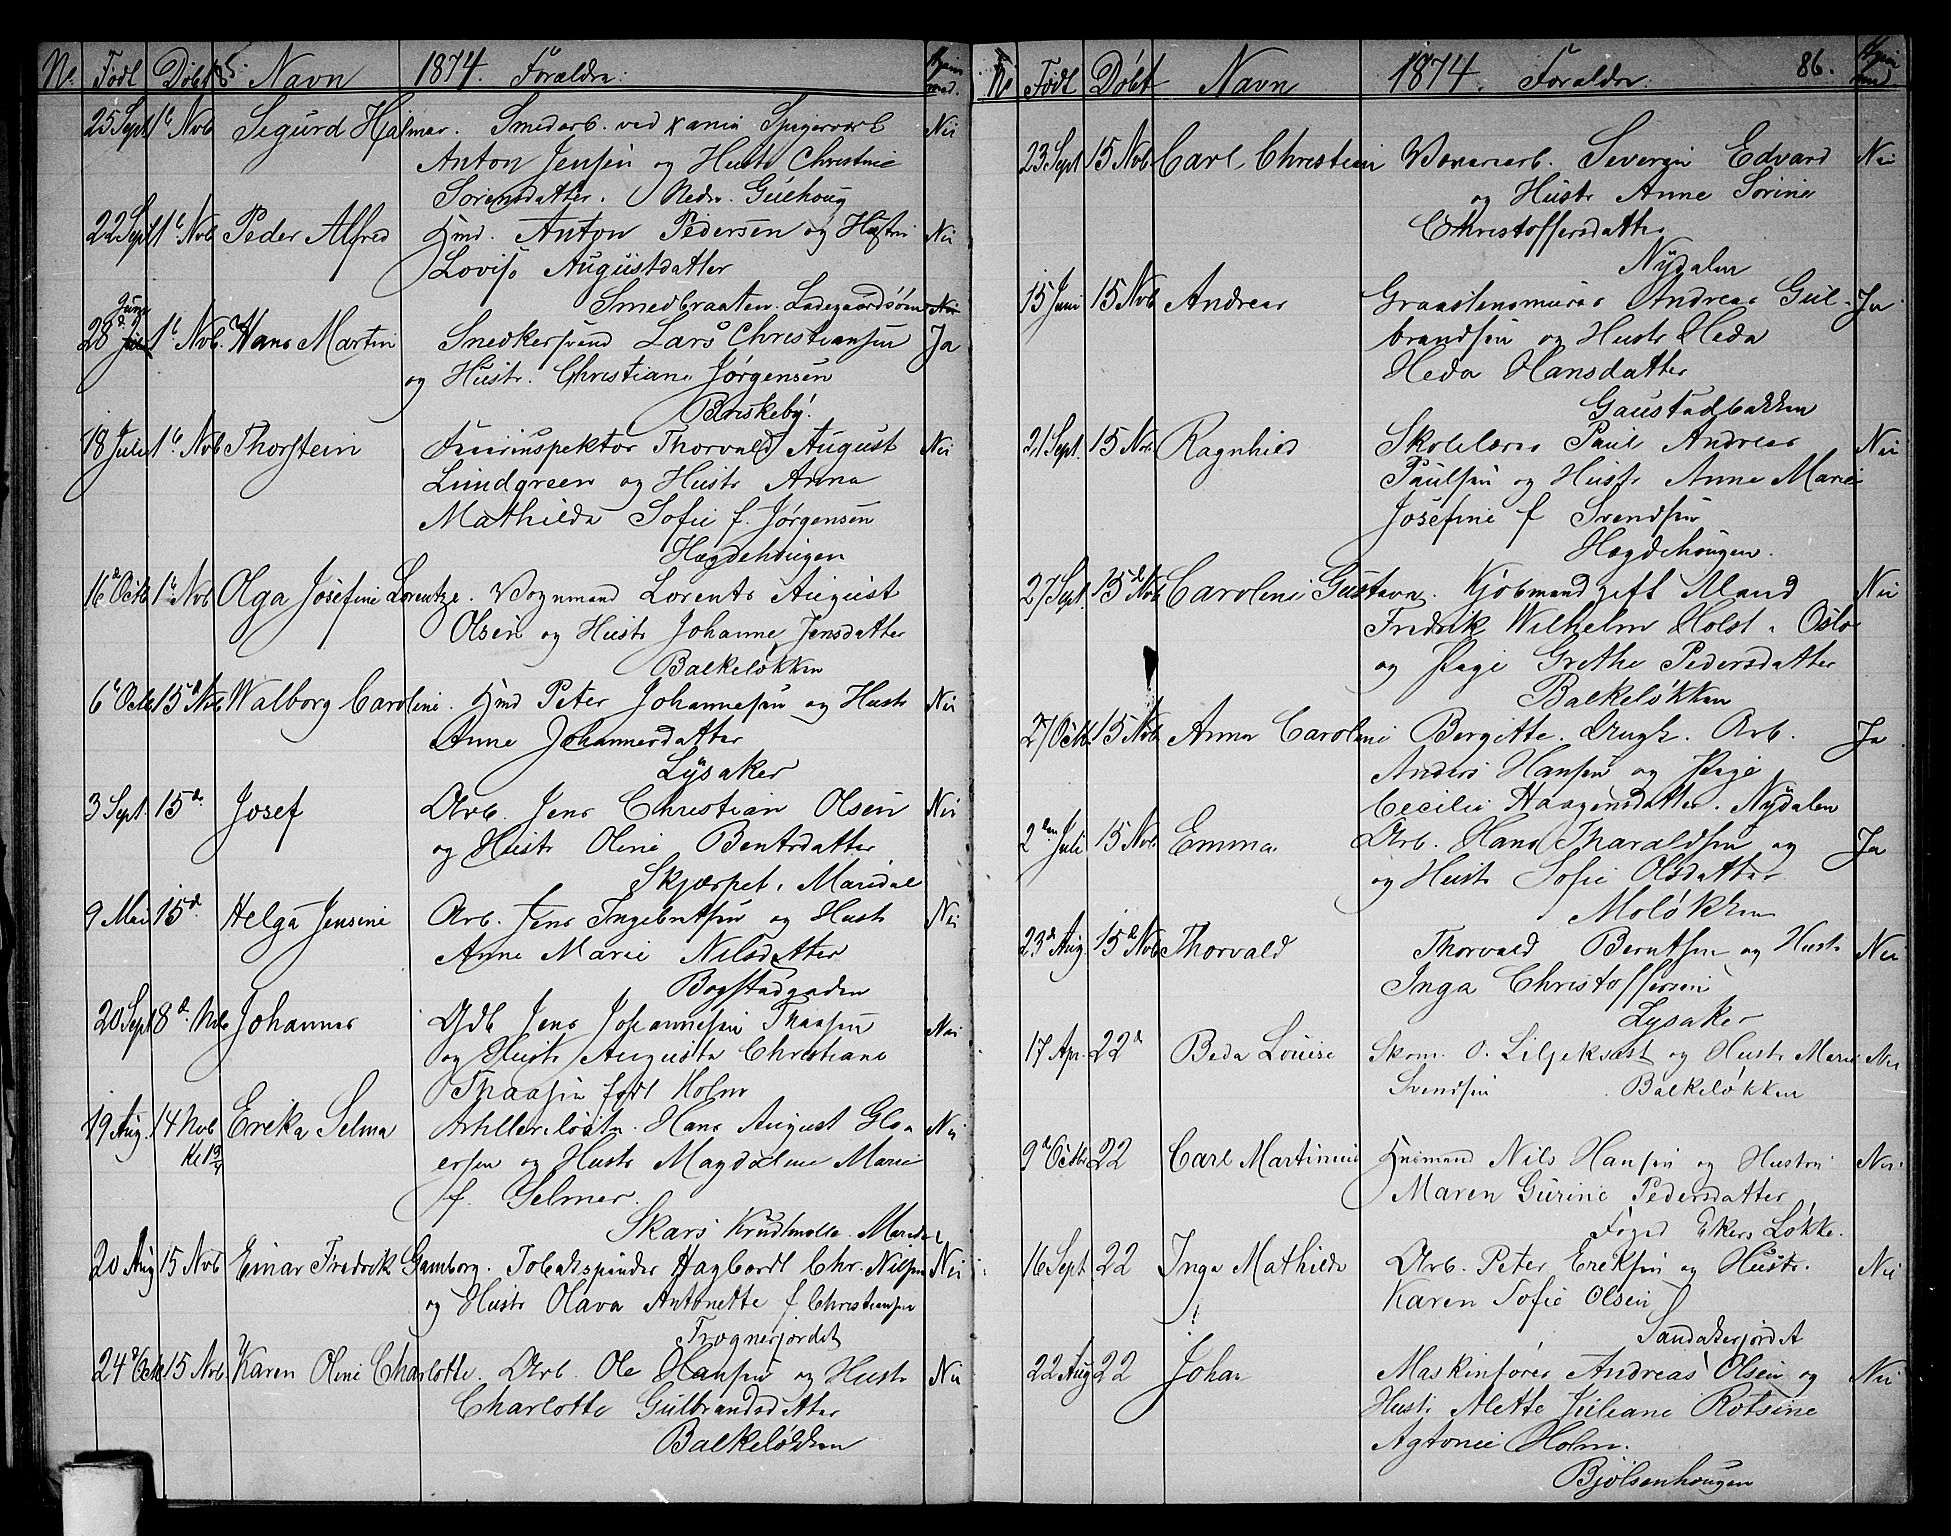 No. Født Døbt Navn 1874. Forældre: Hjem med.
25 Sept 1ste Novb Sigurd Hjalmar. Smedarb. ved Xania Spigerværk Nei
Anton Jensen og Hustr Christine
Sorensdatter. Nedr. Guehoug
22 Sept 1ste Novb Peder Alfred Hmd. Anton Pedersen og Hustru Nei
Lovise Augustdatter
Smedbraaten. Ladegaardsøen
28 Juni 1ste Novb. Hans Martin Snedkersvend Lars Christiansen Ja
og Hustr. Christiane Jørgensen
Briskeby.
18 Juli 1ste Novb Thorstein August Thorvald Nei
Lundgreen og Hustr Anna
Mathilda Sofie f. Jørgensen
Hægdehougen
16de Octb 1ste Novb Olga Josefine Lorentze. Vognmand Lorents August
Olsen og Hustr Johanne Jensdatter
Balkeløkken
6te Octb 15de Novb Walborg Caroline. Hmd Peter Johannesen og Hustr Nei
Anne Johannesdatter
Lysaker
3 Sept. 15de Josef Arb. Jens Christian Olsen Nei
og Hustr Oline Bentsdatter
Skjærpet i Maridal
9 Mai 15de Helga Jensine Arb. Jens Ingebretsen og Hustr Nei
Anne Marie Nilsdatter
Bogstadgaden
20 Sept 8de Novb Johannes Gdb Jens Johannesen Thaasen Nei
og Hustr Augusta Christiane
Thaasen født Holm
19 Aug. 14 Novb Erika Selma Hans August Nei
og Hustr Magdalene Marie
f. Selmer.
Skars Krudtmølle. Maridal
20 Aug 15 Novb Einar Fredrik Gamborg. Tobakspinder Hagbardt Chr. Nilsen Nei
og Hustr Olava Antonette f Christiansen
Frognerjordet
24de Octb 15 Novb. Karen Oline Charlotte. Arb. Ole Hansen og Hustr Nei
Charlotte Gulbrandsdatter
Balkeløkken

No Født Døbt Navn 1874. Forældre. 86. Hjem med.
23 Sept 15 Novb Carl Christian Severin Edvard Nei
og Hustr Anne Sorine
Christoffersdatter
Nydalen
15 Juni 15 Novb Andreas Graastensmurer Andreas Gul- Ja
brandsen og Hustr Heda
Heda Hansdatter
Gaustadbakken
21 Sept. 15 Nov. Ragnhild Skolelærer Paul Andreas Nei
Paulsen og Hustr Anne Marie
Josefine f Svendsen
Hægdehougen.
27 Sept. 15de Novb Caroline Gustava. Kjøbmand gift Mand Nei
Fredrik Wilhelm Holst i Oslo
og Pige Grethe Pedersdatter
Balkeløkken
27 Octb. 15 Novb Anna Caroline Bergitte. Ungk. Arb. Ja
Anders Hansen og Pige
Cecilie Haagensdatter. Nydalen
2den Juli 15 Novb Emma Arb. Hans Tharaldsen og Ja
og Hustr Sofie Olsdatter
Moløkken
23de Aug. 15de Novb Thorvald Thorvald Berntsen og Hustr Nei
Inga Christoffersen
Lysaker
17 Apr. 22de Beda Louise Skom. O. Liljekvist og Hustr Marie Nei
Svendsen Balkeløkken
9de Octb 22 Carl Martinius Husmand Nils Hansen og Hustru Nei.
Maren Gurine Pedersdatter
Foged Ekers Løkke.
16 Sept 22 Inga Mathilde Arb. Peter Eriksen og Hustr. Nei
Karen Sofie Olsen
Sandakerjordet
22 Aug 22 Johan Maskinfører Andreas Olsen og Nei
Hustr Mette Juliane Rotsine
Agtonie Holm.
Bjølsenhougen